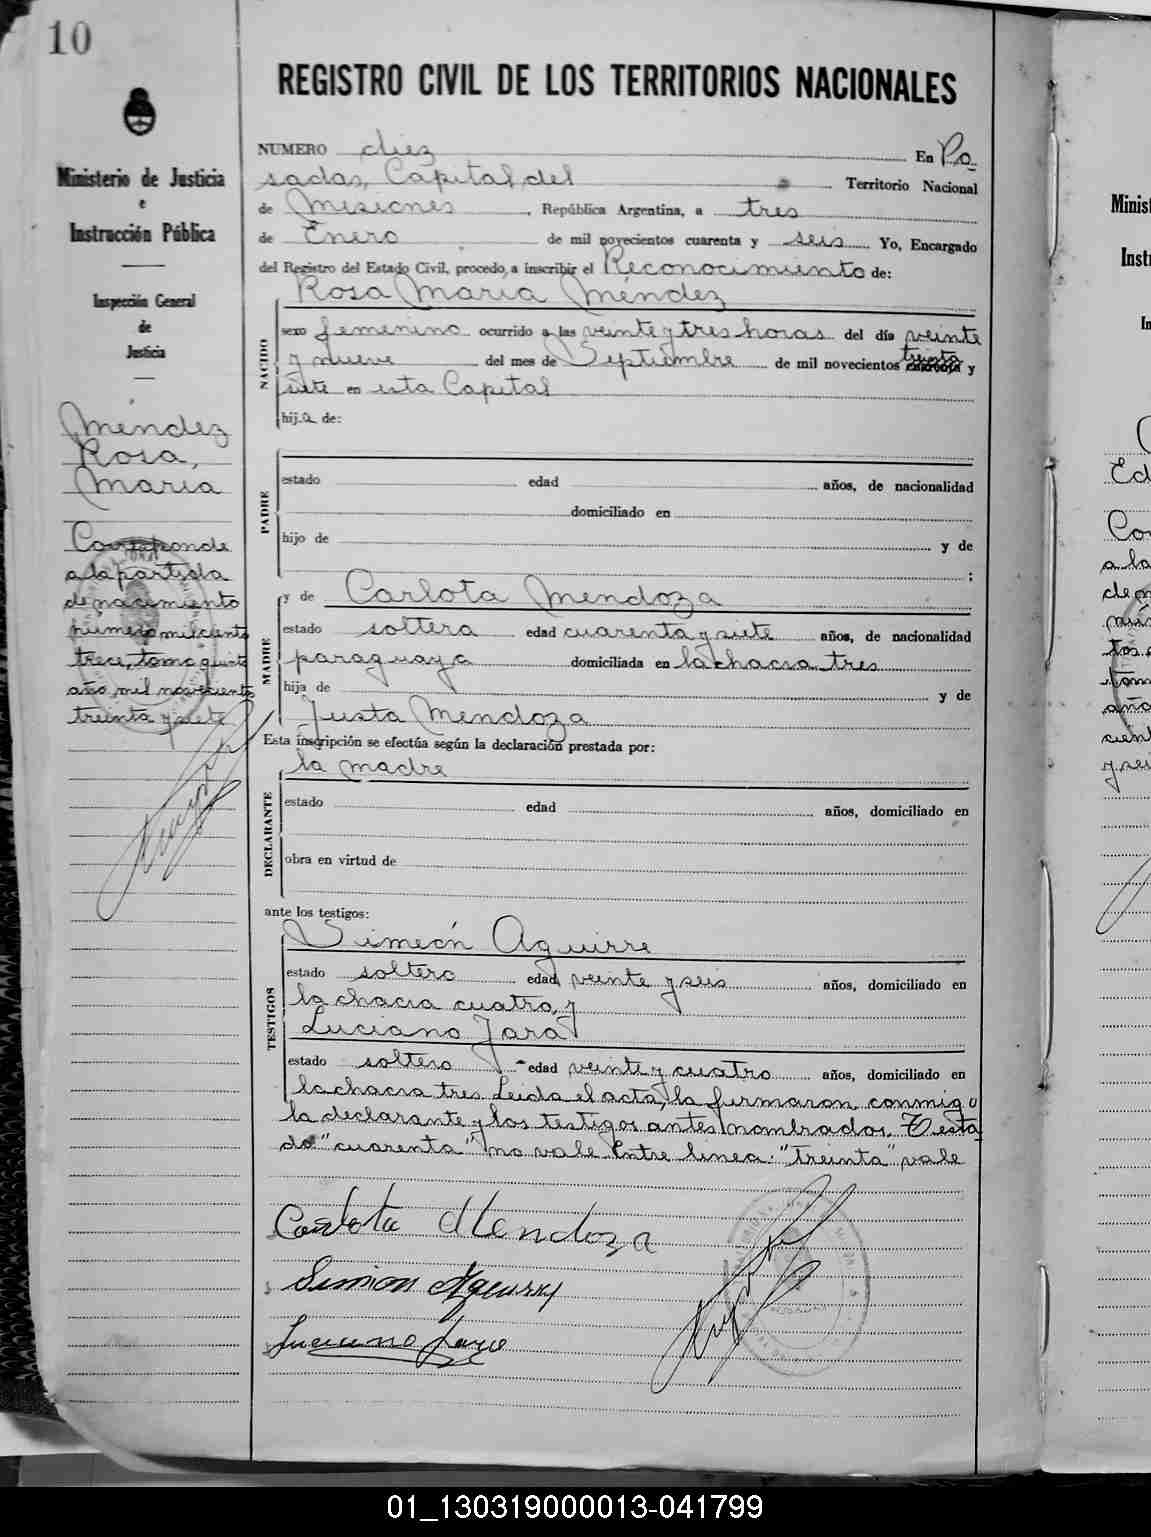 10
Ministerio de Justicia
e
Instrucción Pública
Inspección General
de
Justicia
Méndez
Rosa,
María
Corresponde
a la partida
de nacimiento
número mil ciento
trece, tomo quinto
año mil novecientos
treinta y siete
REGISTRO CIVIL DE LOS TERRITORIOS NACIONALES
NUMERO diez En Po
sadas, Capital del Territorio Nacional
de Misiones, República Argentina, a tres
de Enero de mil novecientos cuarenta y seis Yo, Encargado
del Registro del Estado Civil, procedo, a inscribir el Reconocimiento de:
Rosa María Méndez
NACIDO
sexo femenino ocurrido a las veinte y tres horas del día veinte
y nueve del mes de Septiembre de mil novecientos treinta y
siete en esta Capital
hija de:
PADRE
estado edad años, de nacionalidad
domiciliado en
hijo de y de
;
MADRE
y de Carlota Mendoza
estado soltera edad cuarenta y siete años, de nacionalidad
paraguaya domiciliada en la chacra tres
hija de y de
Justa Mendoza
Esta inscripción se efectúa según la declaración prestada por:
la madre
DECLARANTE
estado edad años, domiciliado en
obra en virtud de
ante los testigos:
TESTIGOS
Simeón Aguirre
estado soltero edad veinte y seis años, domiciliado en
la chacra cuatro, y
Luciano Jara
estado soltero edad veinte y cuatro años, domiciliado en
la chacra tres Leida el acta, la firmaron conmigo
la declarante y los testigos antes nombrados. Testa
do "cuarenta" no vale Entre linea: "treinta" vale
Carlota Mendoza
Simion Aguirry
Luciano Jara
Minist
Instr
In
Ed
Co
a la
de n
01_130319000013-041799